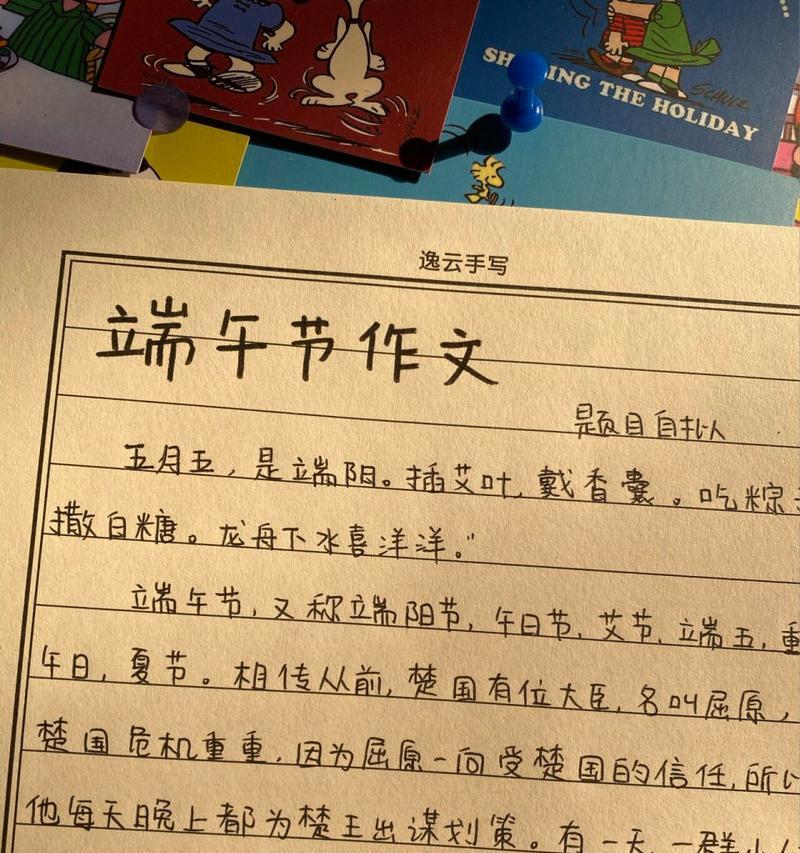 SH ING THE HOLIDAY
逸云手写
端午节作文
题目自拟
五月五，是端阳。插艾叶，戴香囊。吃粽
撒白糖。龙舟下水喜洋洋。”
端午节，又称端阳节，午日节，艾节，端五，重
午日，夏节。相传从前，楚国有位大臣，名叫屈原，
楚国危机重重，因为屈原一向受楚国的信任，所以
他每天晚上都为楚王出谋划策。有一天，一群小人